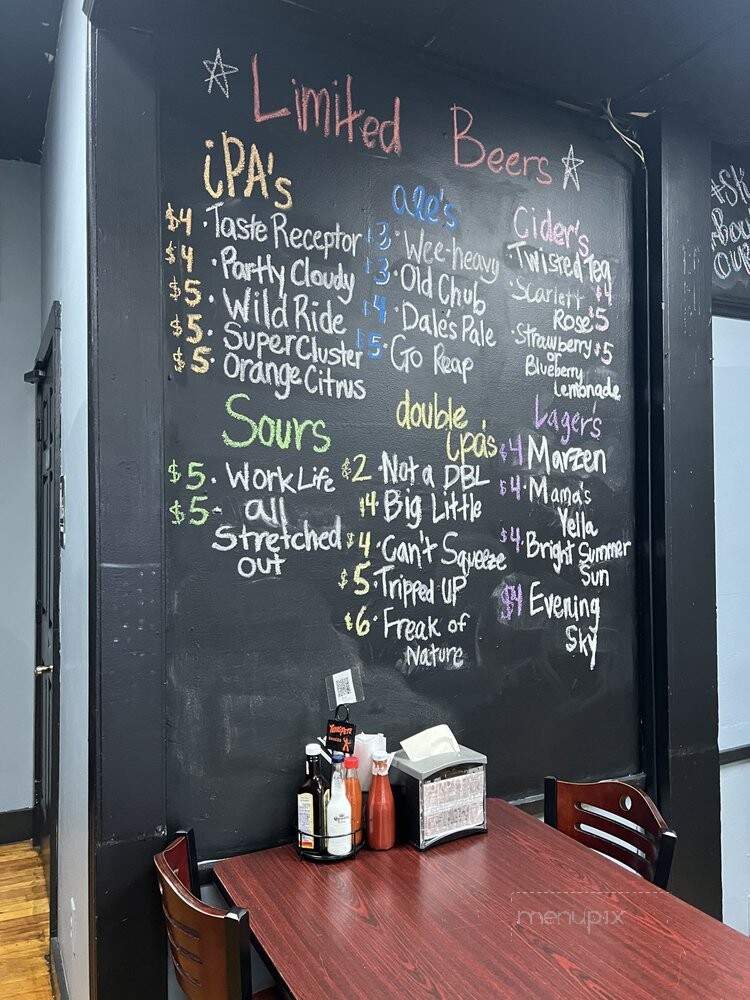 Limited Beers
iPA's
$4 · Taste Receptor
$4 · Partly Cloudy
$5 · Wild Ride
$5 · Super Cluster
$5 · Orange Citrus
ale's
$3 · Wee-heavy
$3 · Old Chub
$4 · Dale's Pale
$5 · Go Reap
Cider's
· Twisted Tea
$4
· Scarlett
Rose $5
· Strawberry $5
or
Blueberry
Lemonade
Sours
$5 · Work Life
$5 - all
Stretched
Out
double
ipa's
$2 · Not a DBL
$4 · Big Little
$4 · Can't Squeeze
$5 · Tripped UP
$6 · Freak of
Nature
Lager's
$4 Marzen
$4 · Mama's
Yella
$4 · Bright Summer
Sun
$4 Evening
Sky
ASK
About
our
menupix